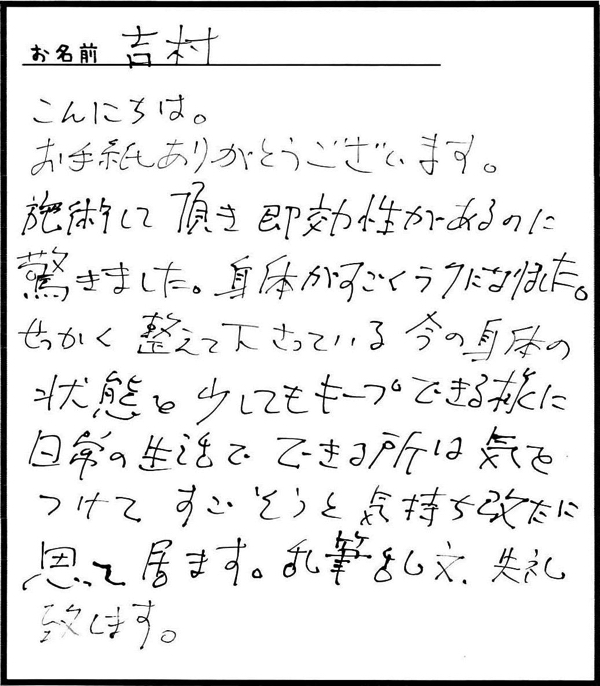 お名前 吉村
こんにちは。
お手紙ありがとうございます。
施術して頂き即効性があるのに
驚きました。身体がすごくラクになりました。
せっかく整えて下さっている今の身体の
状態を少しでもキープできる様に
日常の生活でできる所は気を
つけてすごそうと気持ち改たに
思って居ます。乱筆乱文、失礼
致します。